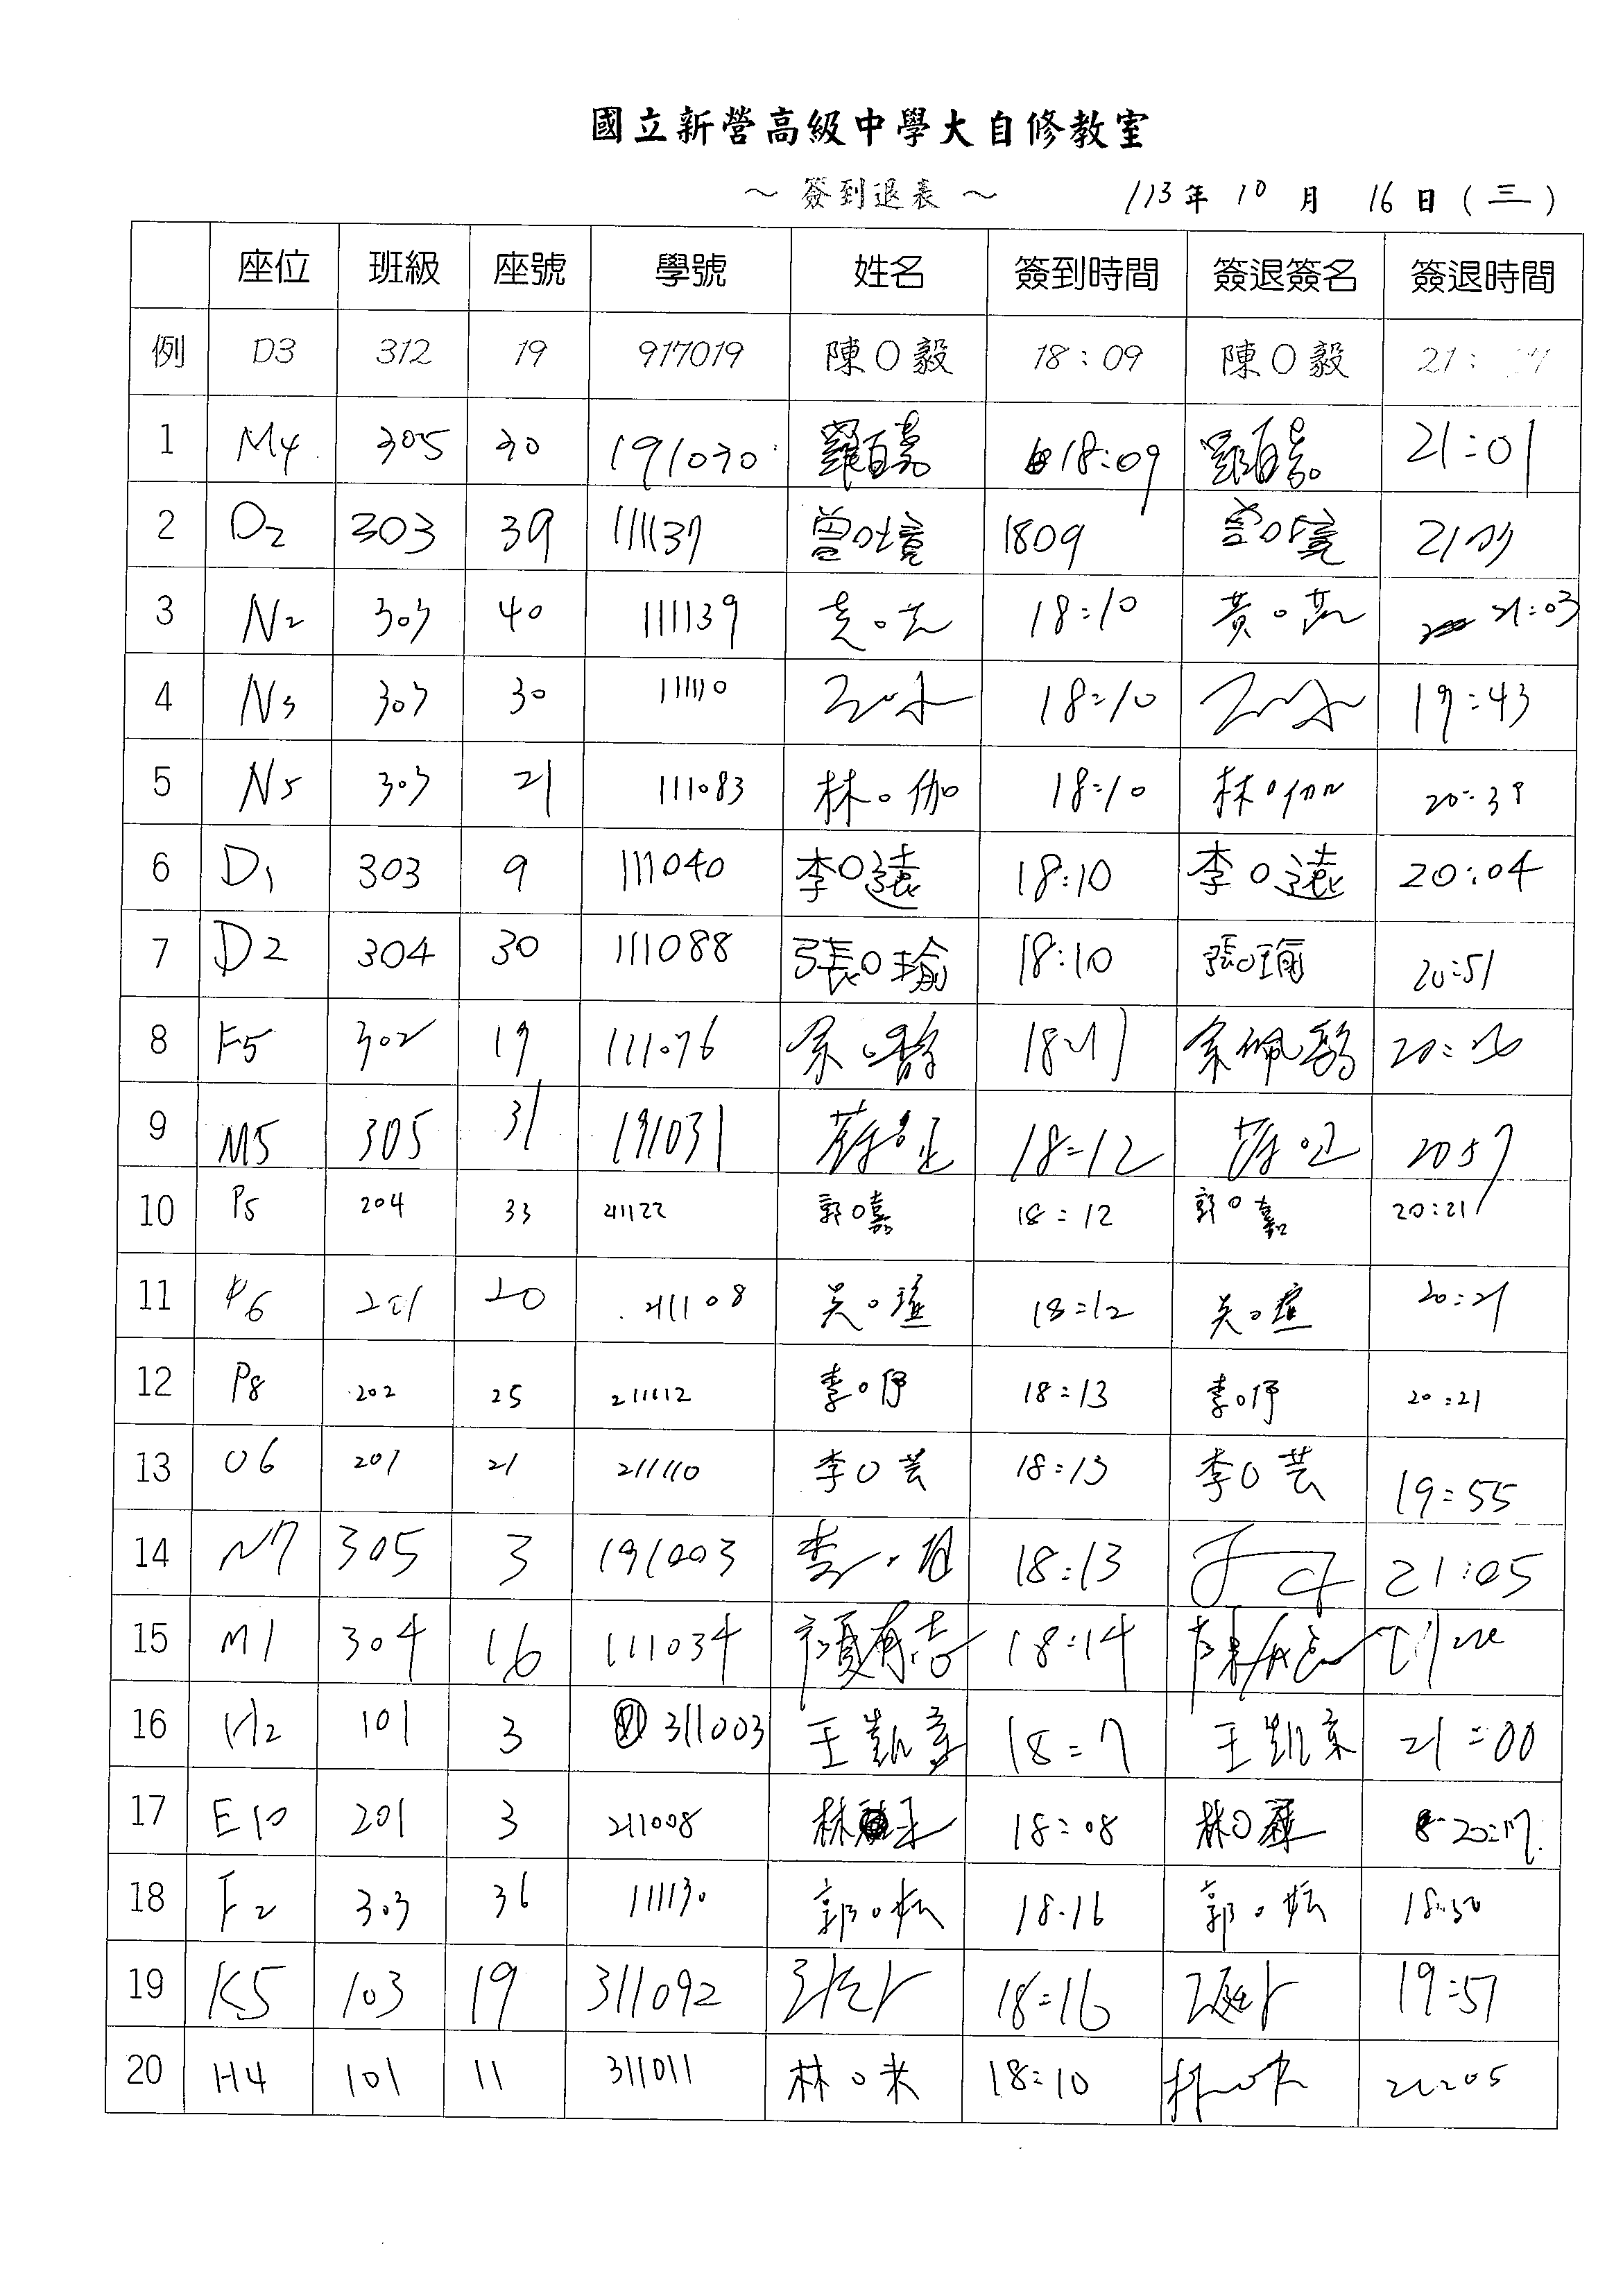 國立新營高級中學大自修教室
～ 簽到退表 ～ 113年 10 月 16 日 ( 三 )
座位 班級 座號 學號 姓名 簽到時間 簽退簽名 簽退時間
例 D3 312 19 917019 陳O毅 18:09 陳O毅 21:
1 M4 305 30 191030 羅百嘉 18:09 羅百嘉 21:01
2 D2 303 39 111137 曾O 1809 曾O
3 N2 303 40 111139 黃O 18:10 黃O 21:03
4 N3 303 30 111110 18:10 19:43
5 N5 303 21 111083 林O伽 18:10 林O伽 20:39
6 D1 303 9 111040 李O遠 18:10 李O遠 20:04
7 D2 304 30 111088 張O瑜 18:10 張O瑜 20:51
8 F5 302 19 111076 余O馨 余佩
9 M5 305 31 191031 18:12 2057
10 P5 204 33 211122 郭O嘉 18:12 郭O嘉 20:21
11 P6 201 20 211108 吳O瑄 18:12 吳O瑄 20:21
12 P8 202 25 211112 李O伃 18:13 李O伃 20:21
13 O6 201 21 211110 李O芸 18:13 李O芸 19:55
14 N7 305 3 191003 李O 18:13 21:05
15 M1 304 16 111034 18:14
16 H2 101 3 311003 王凱 18:7 王凱 21:00
17 E10 201 3 211008 林 18:08 林O
18 F2 303 36 111130 郭O妘 18:16 郭O妘 18:50
19 K5 103 19 311092 18:16 19:57
20 H4 101 11 311011 林O 18:10 林O 21:05